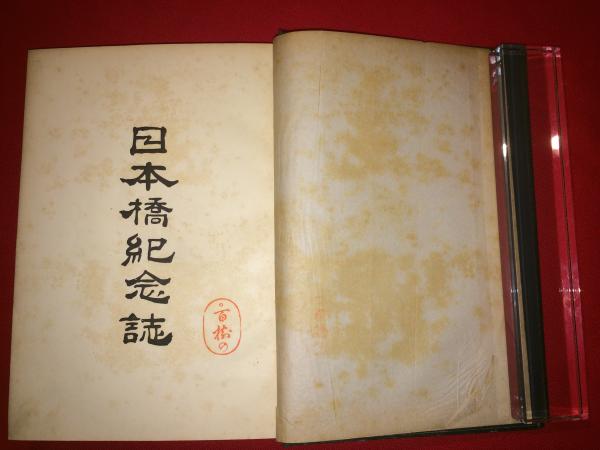 日本橋紀念誌
百樹の